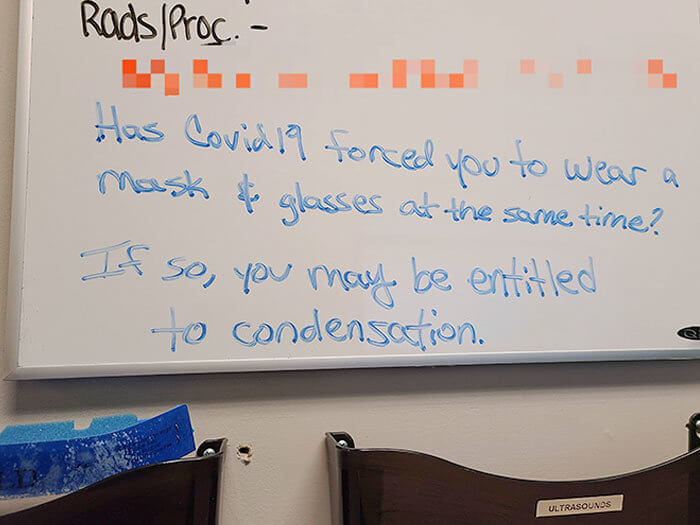 Rads/Proc. -
Has Covid19 forced you to wear a
mask & glasses at the same time?
If so, you may be entitled
to condensation.
ULTRASOUNDS